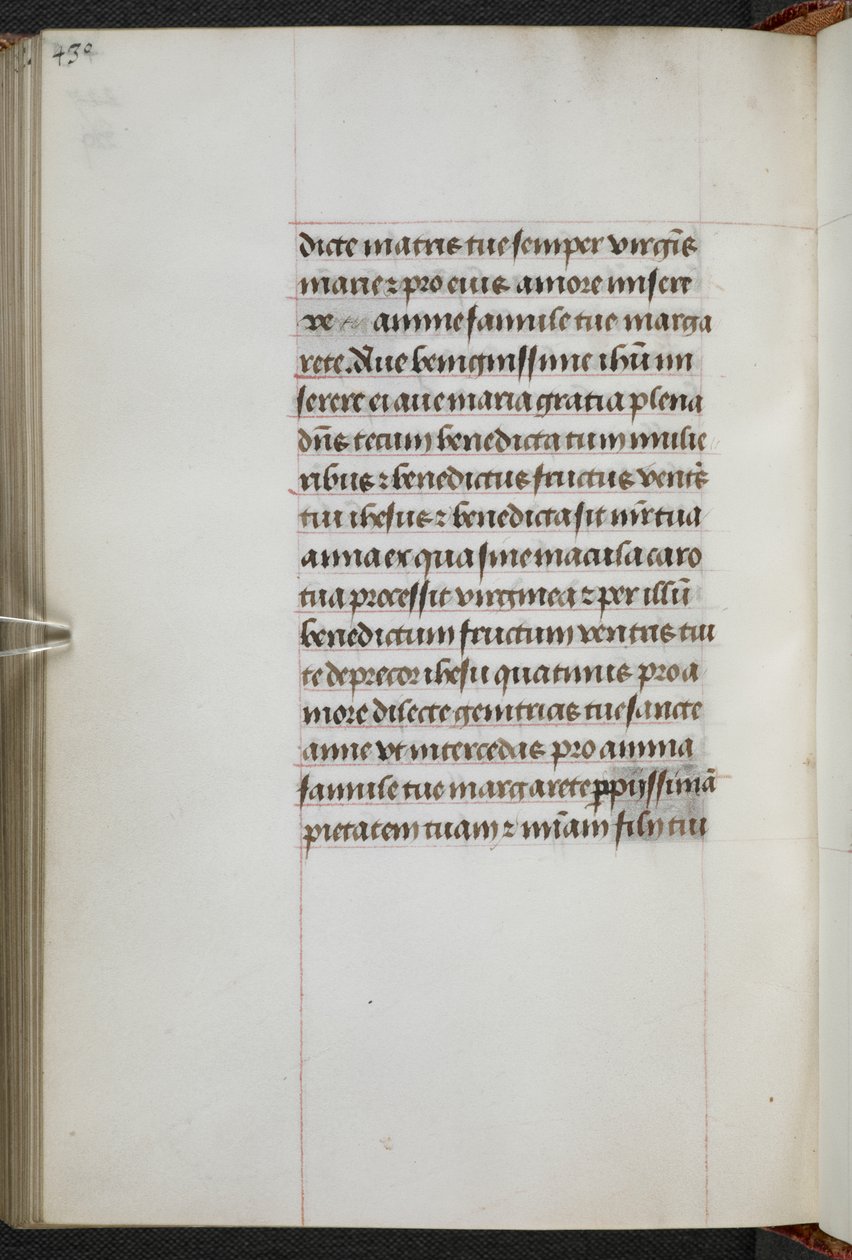 430
dicte matris tue semper virgīs
marie ⁊ pro eius amore misere
re anime famule tue marga
rete. Aue benignissime ihū mi
serere ei aue maria gratia plena
dn̄s tecum benedicta tu in mulie
ribus ⁊ benedictus fructus ventᷤ
tui ihesus ⁊ benedicta sit mr̄ tua
anna ex qua sine macula caro
tua processit virginea ⁊ per illū
benedictum fructum ventris tui
te deprecor ihesu quatinus pro a
more dilecte genitricis tue sancte
anne vt intercedas pro anima
famule tue margarete ꝑ pijssimā
pietatem tuam ⁊ mīam filij tui